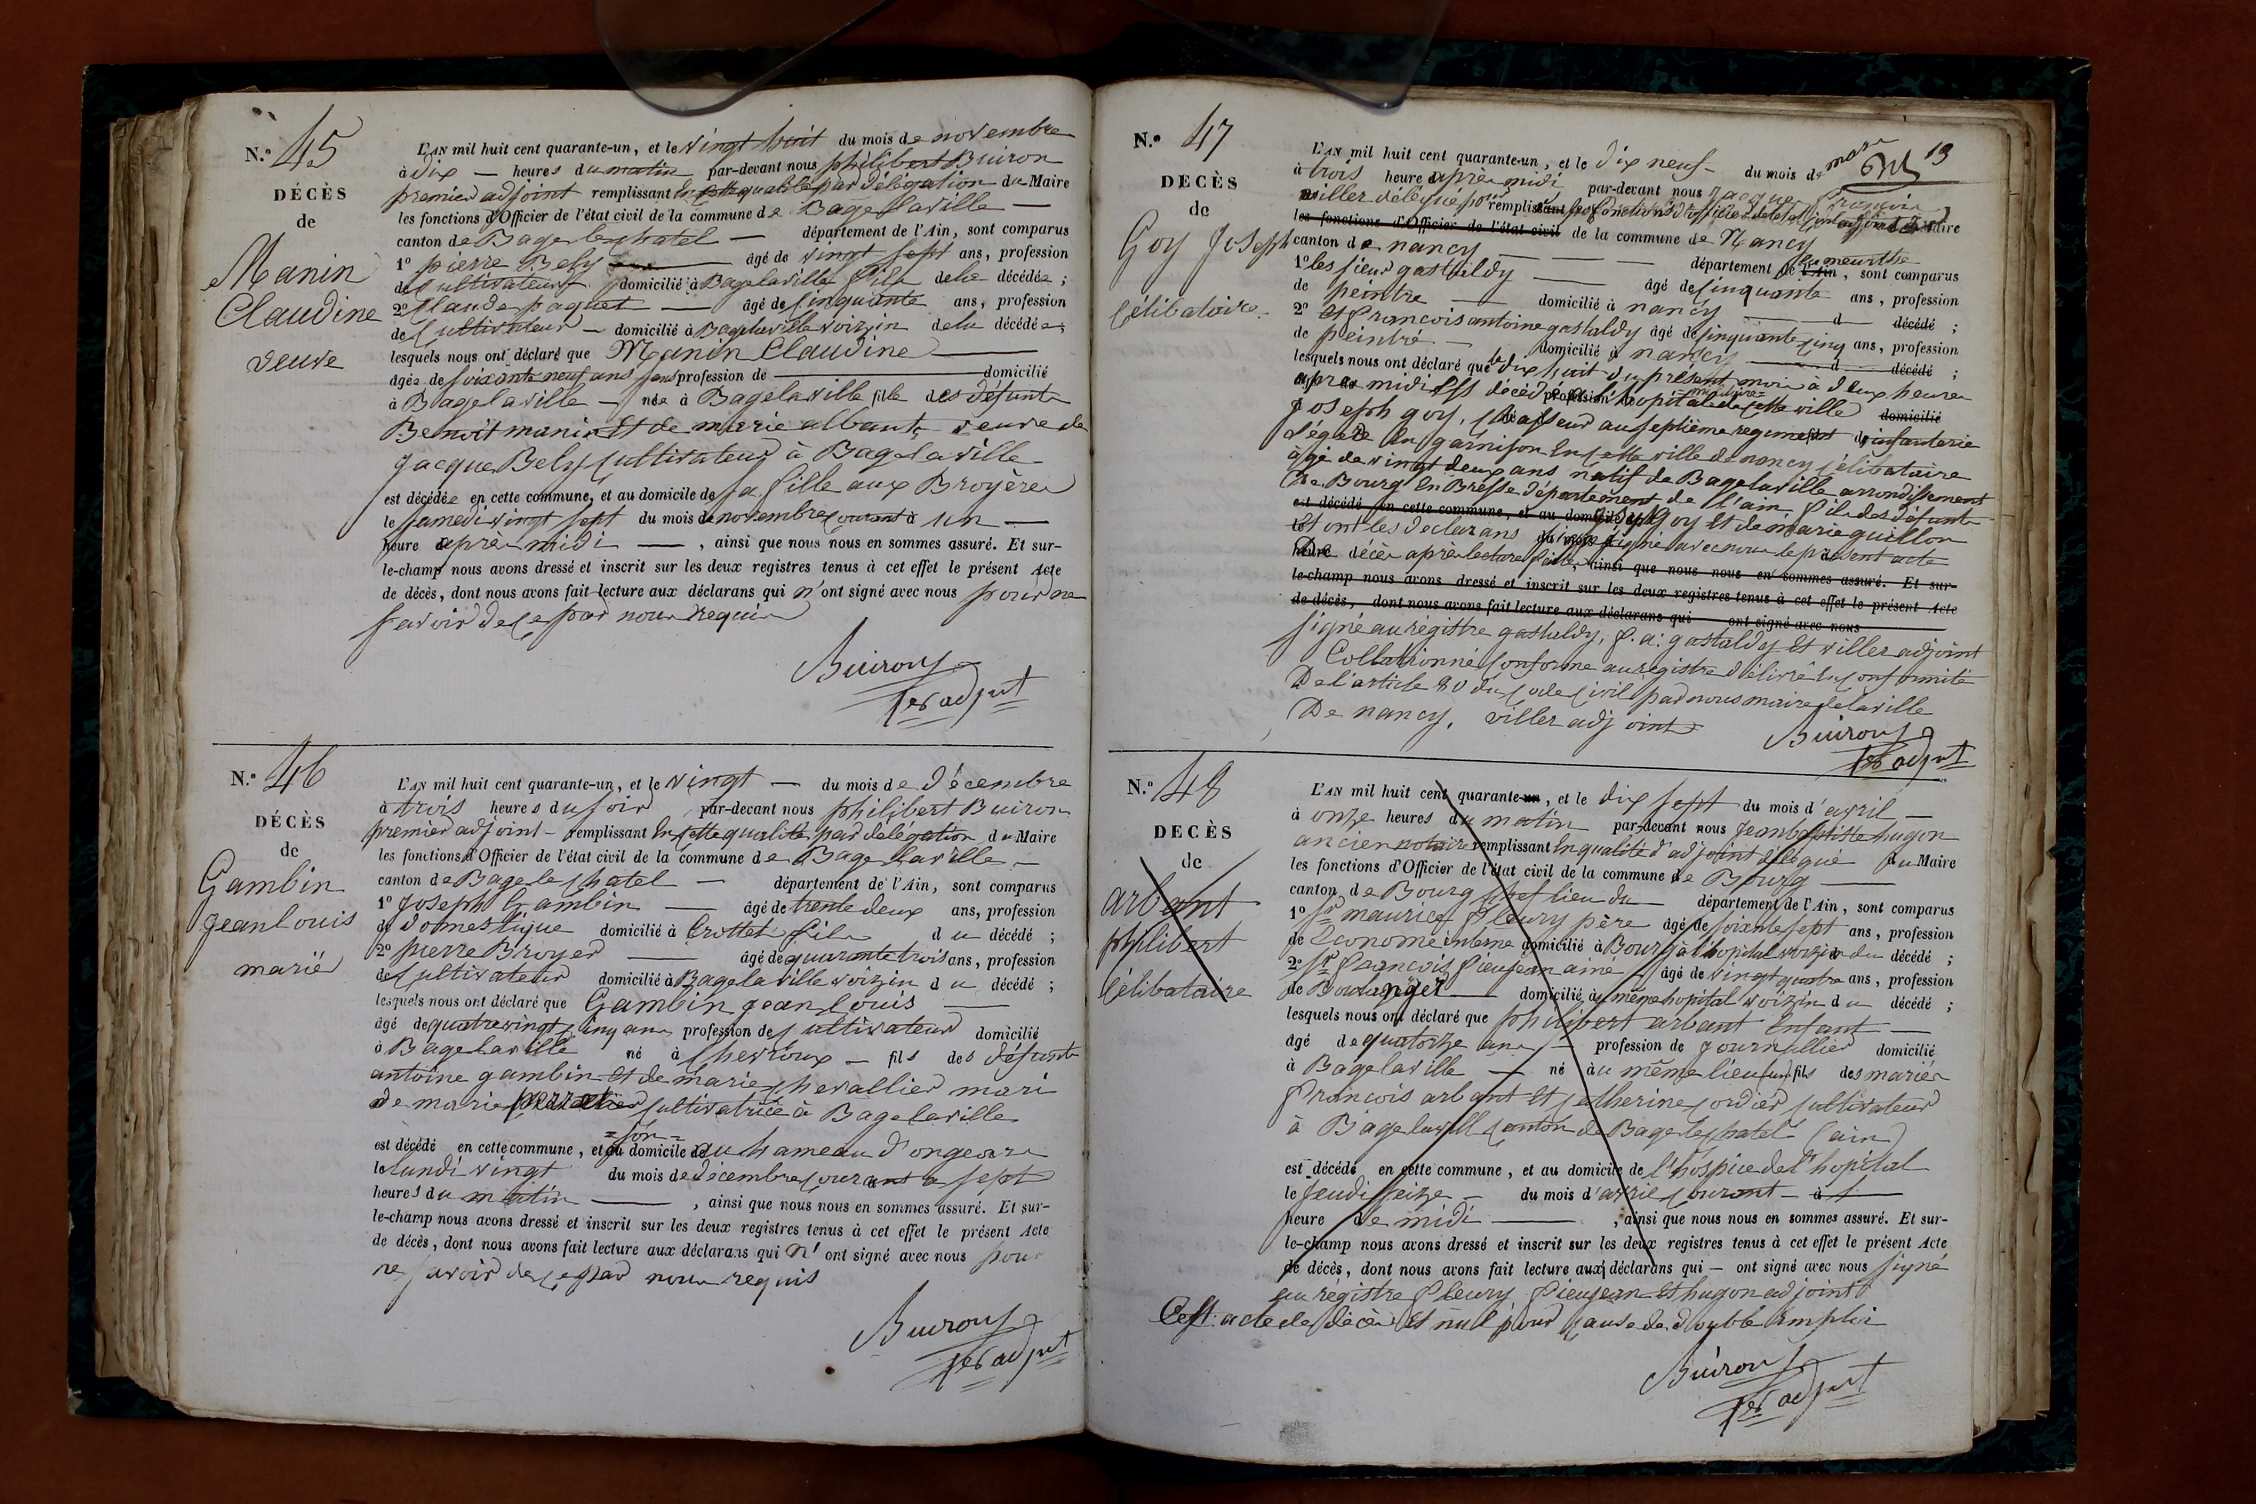 N.º 45
DÉCÈS
de
Manin
Claudine
veuve
L'AN mil huit cent quarante-un, et le vingt huit du mois de novembre
à dix — heures du matin par-devant nous philibert Buiron
premier adjoint remplissant en cette qualité par délégation du Maire
les fonctions d'Officier de l'état civil de la commune de Bagelaville —
canton de Bagelechatel — département de l'Ain, sont comparus
1º pierre Bely — âgé de vingt sept ans, profession
de cultivateur domicilié à Bagelaville fils de la décédée ;
2º Claude paquet — âgé de cinquante ans, profession
de cultivateur — domicilié à Bagelaville voizin de la décédée ;
lesquels nous ont déclaré que Manin Claudine —
âgée de soixante neuf ans sans profession de — domicilié
à Bagelaville — née à Bagelaville fille des défunts
Benoit manin et de marie albant, veuve de
Jacque Bely cultivateur à Bagelaville
est décédée en cette commune, et au domicile de sa fille aux Broyères
le samedi vingt sept du mois de novembre courant à un —
heure après midi — , ainsi que nous nous en sommes assuré. Et sur-
le-champ nous avons dressé et inscrit sur les deux registres tenus à cet effet le présent Acte
de décès, dont nous avons fait lecture aux déclarans qui n'ont signé avec nous pour ne
savoir de ce par nous requis
Buiron
1er adjnt
N.º 46
DÉCÈS
de
Gambin
jean Louis
marié
L'AN mil huit cent quarante-un, et le vingt — du mois de décembre
à trois heures du soir par-devant nous philibert Buiron
premier adjoint — remplissant en cette qualité par délégation du Maire
les fonctions d'Officier de l'état civil de la commune de Bagelaville —
canton de Bagelechatel — département de l'Ain, sont comparus
1º Joseph Gambin — âgé de trente deux ans, profession
de domestique domicilié à Crottet fils du décédé ;
2º pierre Broyer — âgé de quarante trois ans, profession
de cultivateur domicilié à Bagelaville voizin du décédé ;
lesquels nous ont déclaré que Gambin jean Louis —
âgé de quatrevingt cinq ans profession de cultivateur domicilié
à Bagelaville né à Chevroux — fils des défunts
antoine gambin et de marie chevallier mari
de marie cultivatrice à Bagelaville
est décédé en cette commune, et au domicile de = son = au hameau d'ongeova
le lundi vingt du mois de décembre courant à sept
heures du matin — , ainsi que nous nous en sommes assuré. Et sur-
le-champ nous avons dressé et inscrit sur les deux registres tenus à cet effet le présent Acte
de décès, dont nous avons fait lecture aux déclarans qui n'ont signé avec nous pour
ne savoir de ce par nous requis
Buiron
1er adjnt
N.º 47
13
DÉCÈS
de
Goy Joseph
Célibataire
L'AN mil huit cent quarante-un, et le dix neuf — du mois de mars
à trois heure après midi par-devant nous Jacque François
willer délégué pour remplissant les fonctions d'officier de l'état civil adjoint du Maire
les fonctions d'Officier de l'état civil de la commune de Nancy
canton de nancy — département de l'Ain la meurthe, sont comparus
1º les sieur gastaldy — âgé de cinquante ans, profession
de peintre — domicilié à nancy — d décédé ;
2º et francois antoine gastaldy âgé de cinquante cinq ans, profession
de peintre — domicilié à nancy — d décédé ;
lesquels nous ont déclaré que le dix huit du présent mois à deux heure
après midi est décédé profession à l'hopital militaire de cette ville domicilié
Joseph goy, chasseur au septième regiment d'infanterie
légère en garnison en cette ville de nancy célibataire
âgé de vingt deux ans natif de Bagelaville arrondissement
de Bourg en Bresse département de l'ain, fils des défunts
est décédé en cette commune, et au domicile de Goy et de marie guillon
et ont les declarans du mois signé avec nous le présent acte
heure de décès après lecture faite, ainsi que nous nous en sommes assuré. Et sur-
le-champ nous avons dressé et inscrit sur les deux registres tenus à cet effet le présent Acte
de décès, dont nous avons fait lecture aux déclarans qui ont signé avec nous
signé au régistre gastaldy, f. a: gastaldy et willer adjoint
Collationné conforme au régistre délivré en conformité
De l'article 80 du code civil par nous maire de la ville
De nancy, willer adjoint
Buiron
1er adjnt
N.º 48
DÉCÈS
de
arbant
philibert
Célibataire
L'AN mil huit cent quarante-un, et le dix sept du mois d'avril —
à onze heures du matin par-devant nous Jean baptiste hugon
ancien notaire remplissant en qualité d'adjoint délégué du Maire
les fonctions d'Officier de l'état civil de la commune de Bourg —
canton de Bourg chef lieu du — département de l'Ain, sont comparus
1º Sr maurice Fleury père âgé de soixante sept ans, profession
de Econome interne domicilié à Bourg à l'hopital voizin du décédé ;
2º Sr francois Pieujean ainé âgé de vingt quatre ans, profession
de Boulanger — domicilié au même hopital voizin du décédé ;
lesquels nous ont déclaré que philibert arbant Enfant —
âgé de quatorze ans — profession de journallier domicilié
à Bagelaville — né au même lieu fils des mariés
francois arbant et catherine cordier cultivateur
à Bagelavill canton de Bagelechatel (ain)
est décédé en cette commune, et au domicile de l'hospice de l'hopital
le jeudi seize — du mois d'avril courant — à 1 —
heure de midi — , ainsi que nous nous en sommes assuré. Et sur-
le-champ nous avons dressé et inscrit sur les deux registres tenus à cet effet le présent Acte
de décès, dont nous avons fait lecture aux déclarans qui — ont signé avec nous signé
au régistre fleury Pieujean et hugon adjoint
Cest acte de décès est nul pour cause de double Emploi
Buiron
1er adjnt